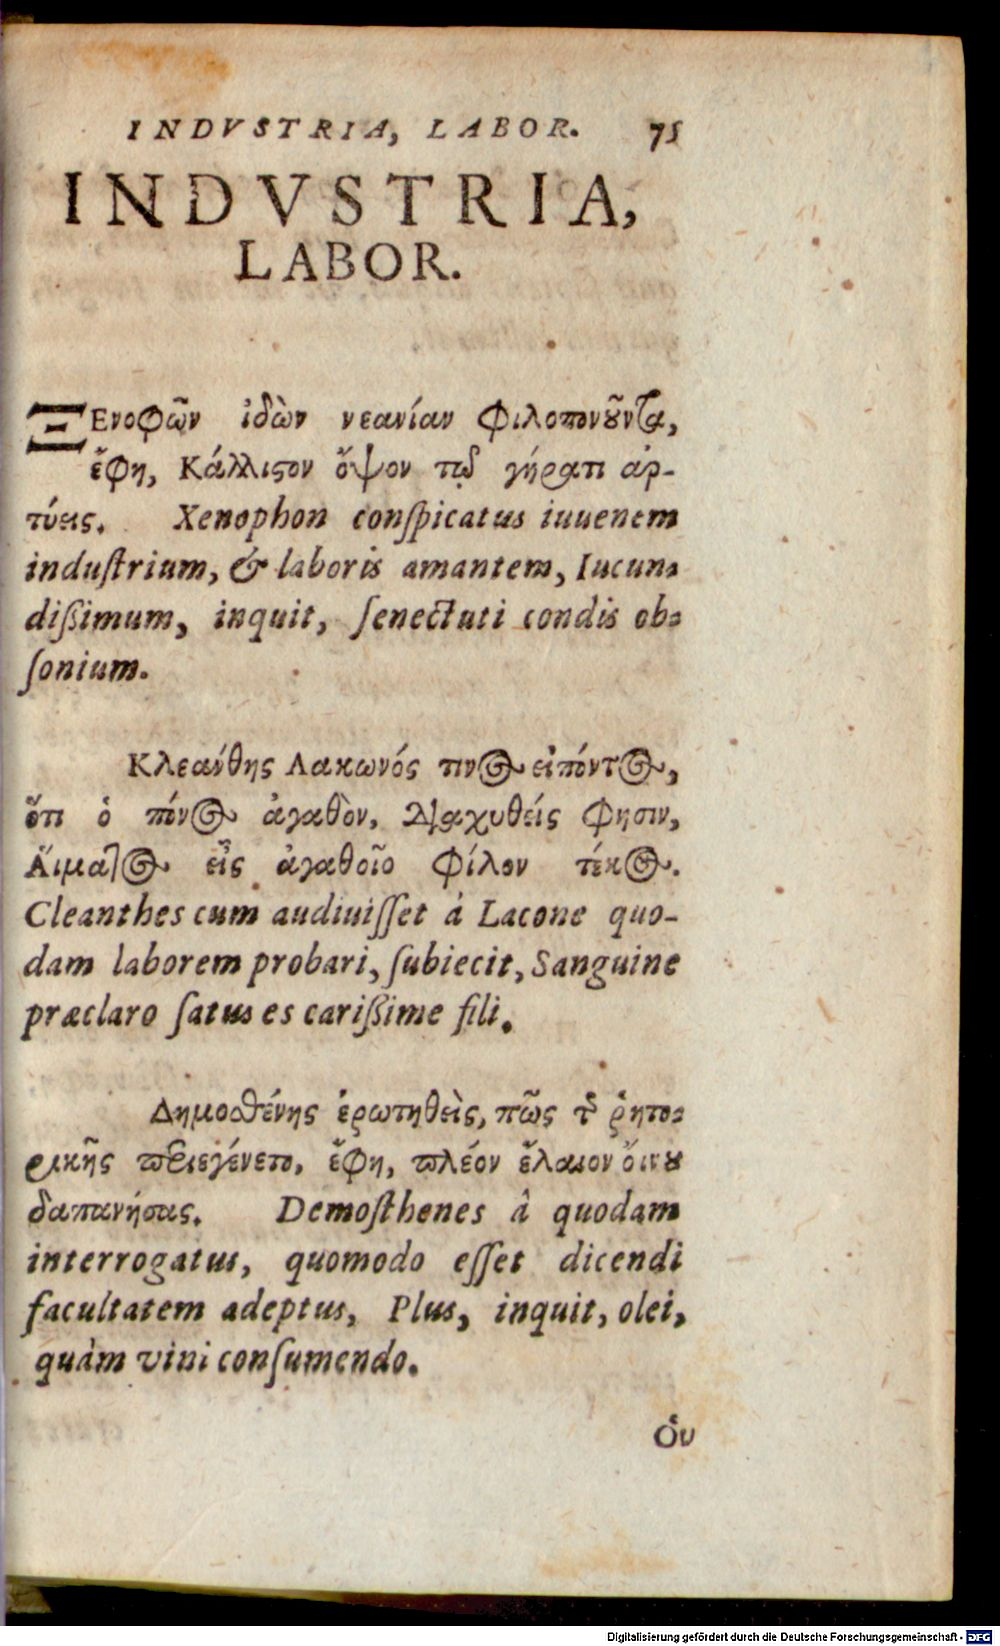 INDVSTRIA, LABOR. 75
INDVSTRIA,
LABOR.
ΞΕνοφῶν ἰδὼν νεανίαν φιλοπονοῦντα,
ἔφη, Κάλλιστον ὄψον τῷ γήρᾳτι ἀρ-
τύεις. Xenophon conſpicatus iuuenem
induſtrium, & laboris amantem, Iucun-
dißimum, inquit, ſenectuti condis ob-
ſonium.
Κλεάνθης Λακωνός τινος εἰπόντος,
ὅτι ὁ πόνος ἀγαθὸν, διαχυθείς φησιν,
Αἵματος εἶς ἀγαθοῖο φίλον τέκος.
Cleanthes cum audiuiſſet á Lacone quo-
dam laborem probari, ſubiecit, Sanguine
præclaro ſatus es carißime fili.
Δημοσθένης ἐρωτηθεὶς, πῶς τῆς ῥητο-
ρικῆς περιεγένετο, ἔφη, πλέον ἔλαιον οἴνου
δαπανήσας. Demoſthenes â quodam
interrogatus, quomodo eſſet dicendi
facultatem adeptus, Plus, inquit, olei,
quàm vini conſumendo.
Οὐ
Digitalisierung gefördert durch die Deutsche Forschungsgemeinschaft - DFG